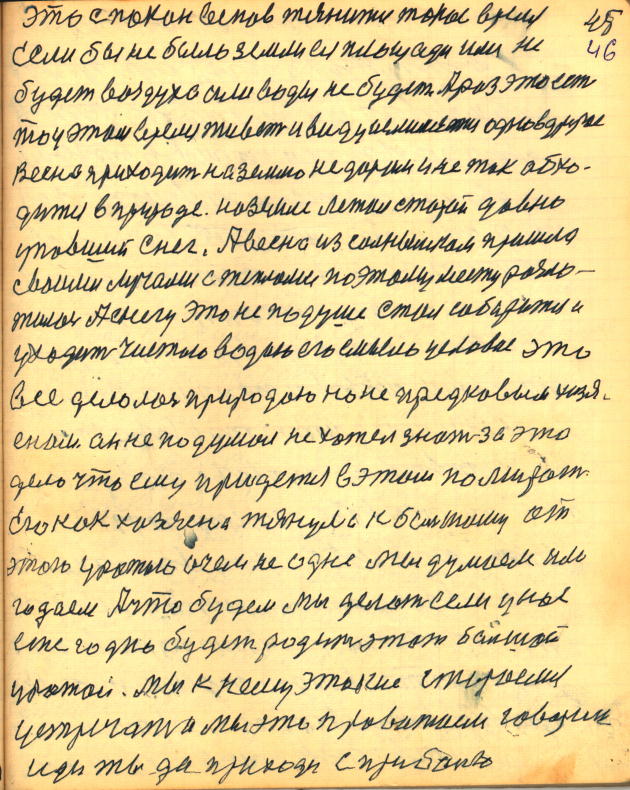 45
46
Это спокон веков тянити такое время
если бы не было земли ея площади или не
будет воздуха али воды не будет. А раз это ест
то у этом время живет и виду одновдругое
весна приходит на землю не даром и не так абхо-
дится в природе. на земле летом старой давно
упавший снег. А весна из солнышком пришла
своими лучами с теплом по этому месту розло-
жилас А снегу это не подуше стал собератся и
уходит чистою водою его смысль уеловие это
все делолоя природою но не предковым хазя-
еном. ан не подумал не хотел знат за это
дело что ему придется в этом помират.
его как хозяена тянула к болшому от
этого урожаю очем не одне мы думаем или
годаем А что будем мы делат если у нас
еже годно будет родит этот балшой
урожай. мы к нему этакие стараемся
устречат а мы это проважаем говорим
иди ты да приходи с прибылю